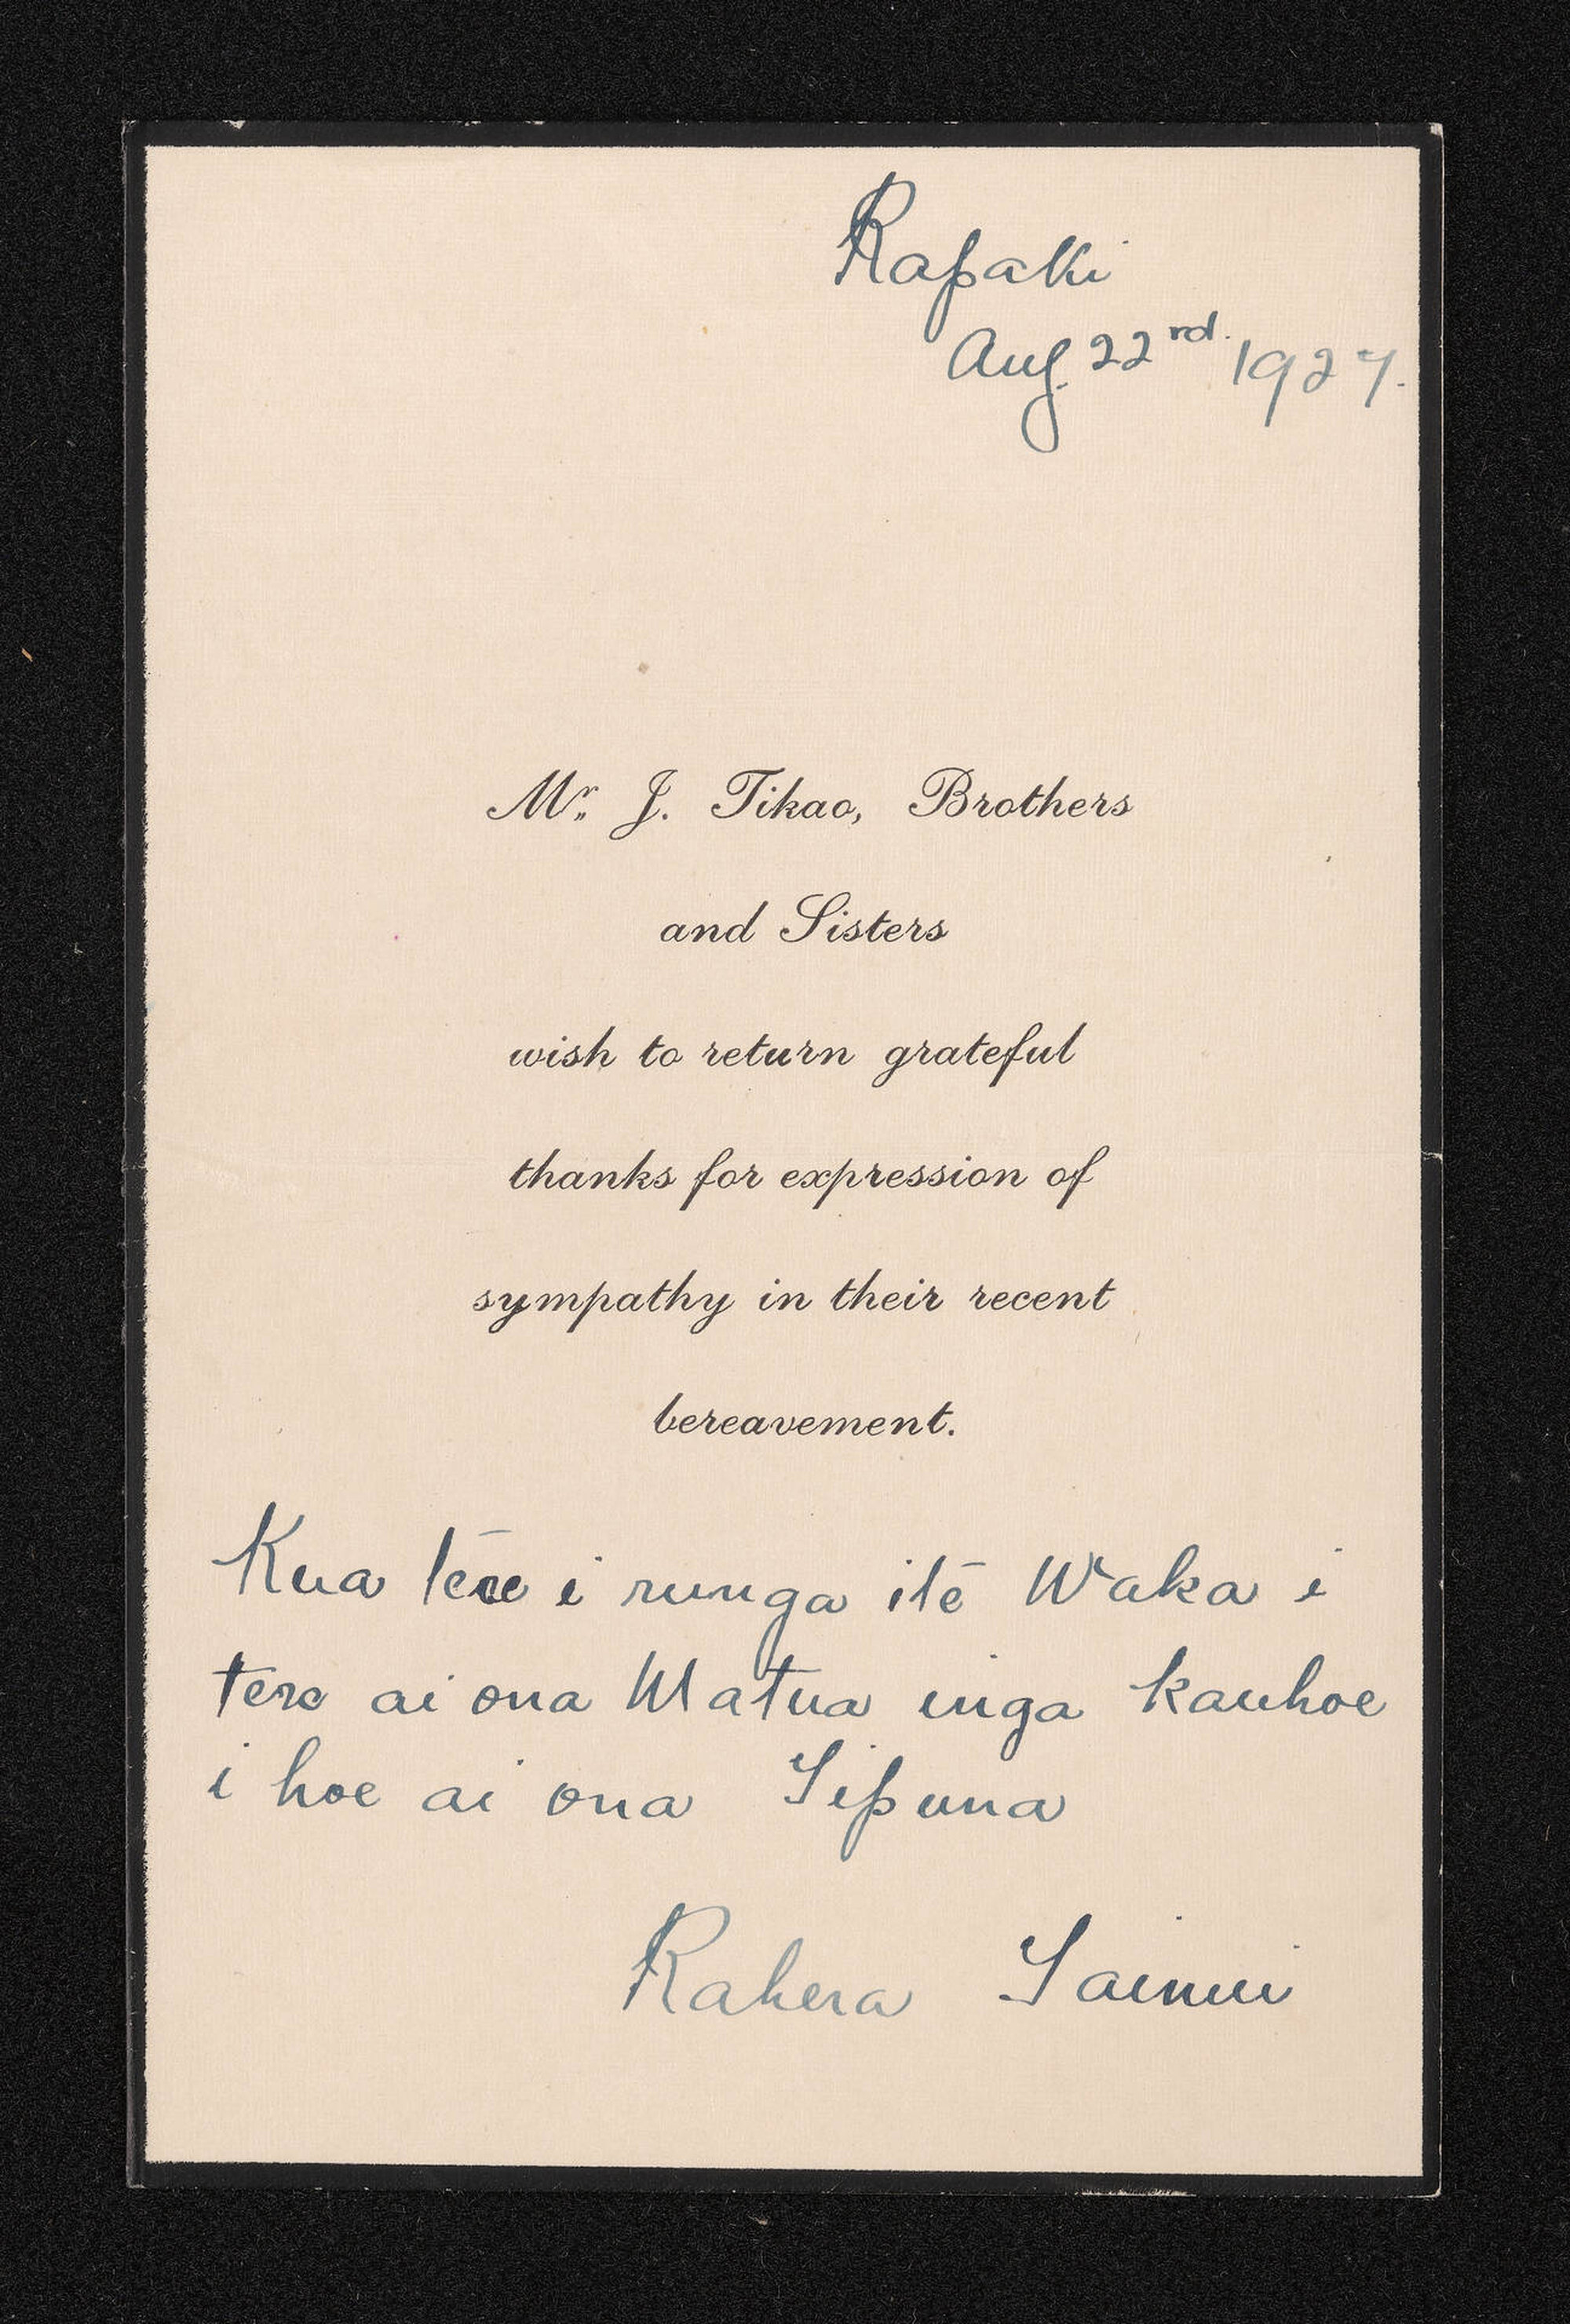 Rapaki
Aug. 22rd. 1927.
Mr. J. Tikao, Brothers
and Sisters
wish to return grateful
thanks for expression of
sympathy in their recent
bereavement.
Kua tēre i runga itē Waka i
tēre ai ona Matua inga kauhoe
i hoe ai ona Tipuna
Rahera Tainui